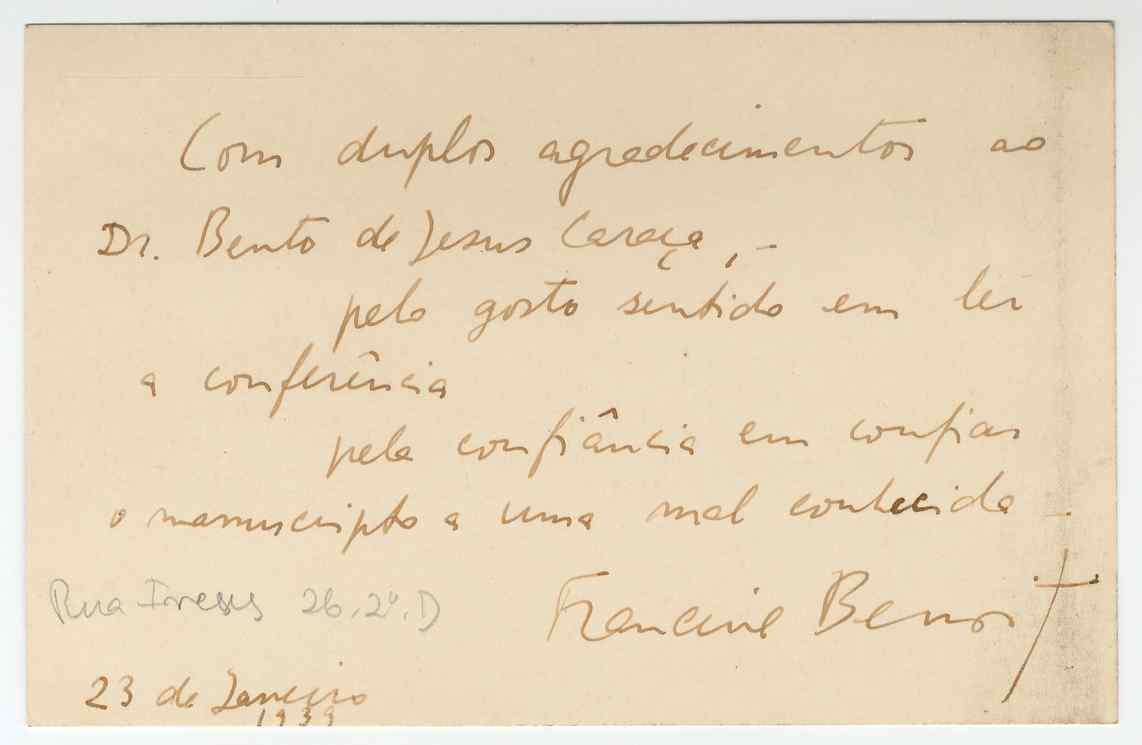 Com duplos agradecimentos ao
Dr. Bento de Jesus Caraça, -
pelo gosto sentido em ler
a conferência
pela confiância em confiar
o manuscripto a uma mal conhecida -
Francine Benoit
Rua 26.2º.D
23 de Janeiro
1939